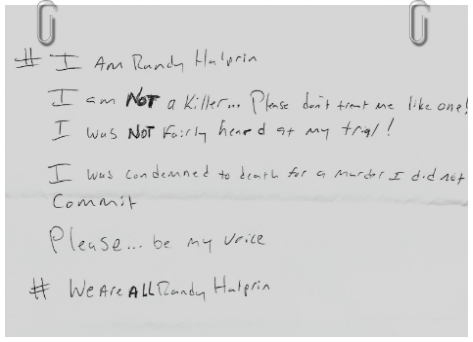 # I Am Randy Halprin
I am NOT a killer... Please don't treat me like one!
I was NOT Fairly heard at my trial!
I was condemned to death for a murder I did not
Commit
Please... be my voice
# We Are ALL Randy Halprin